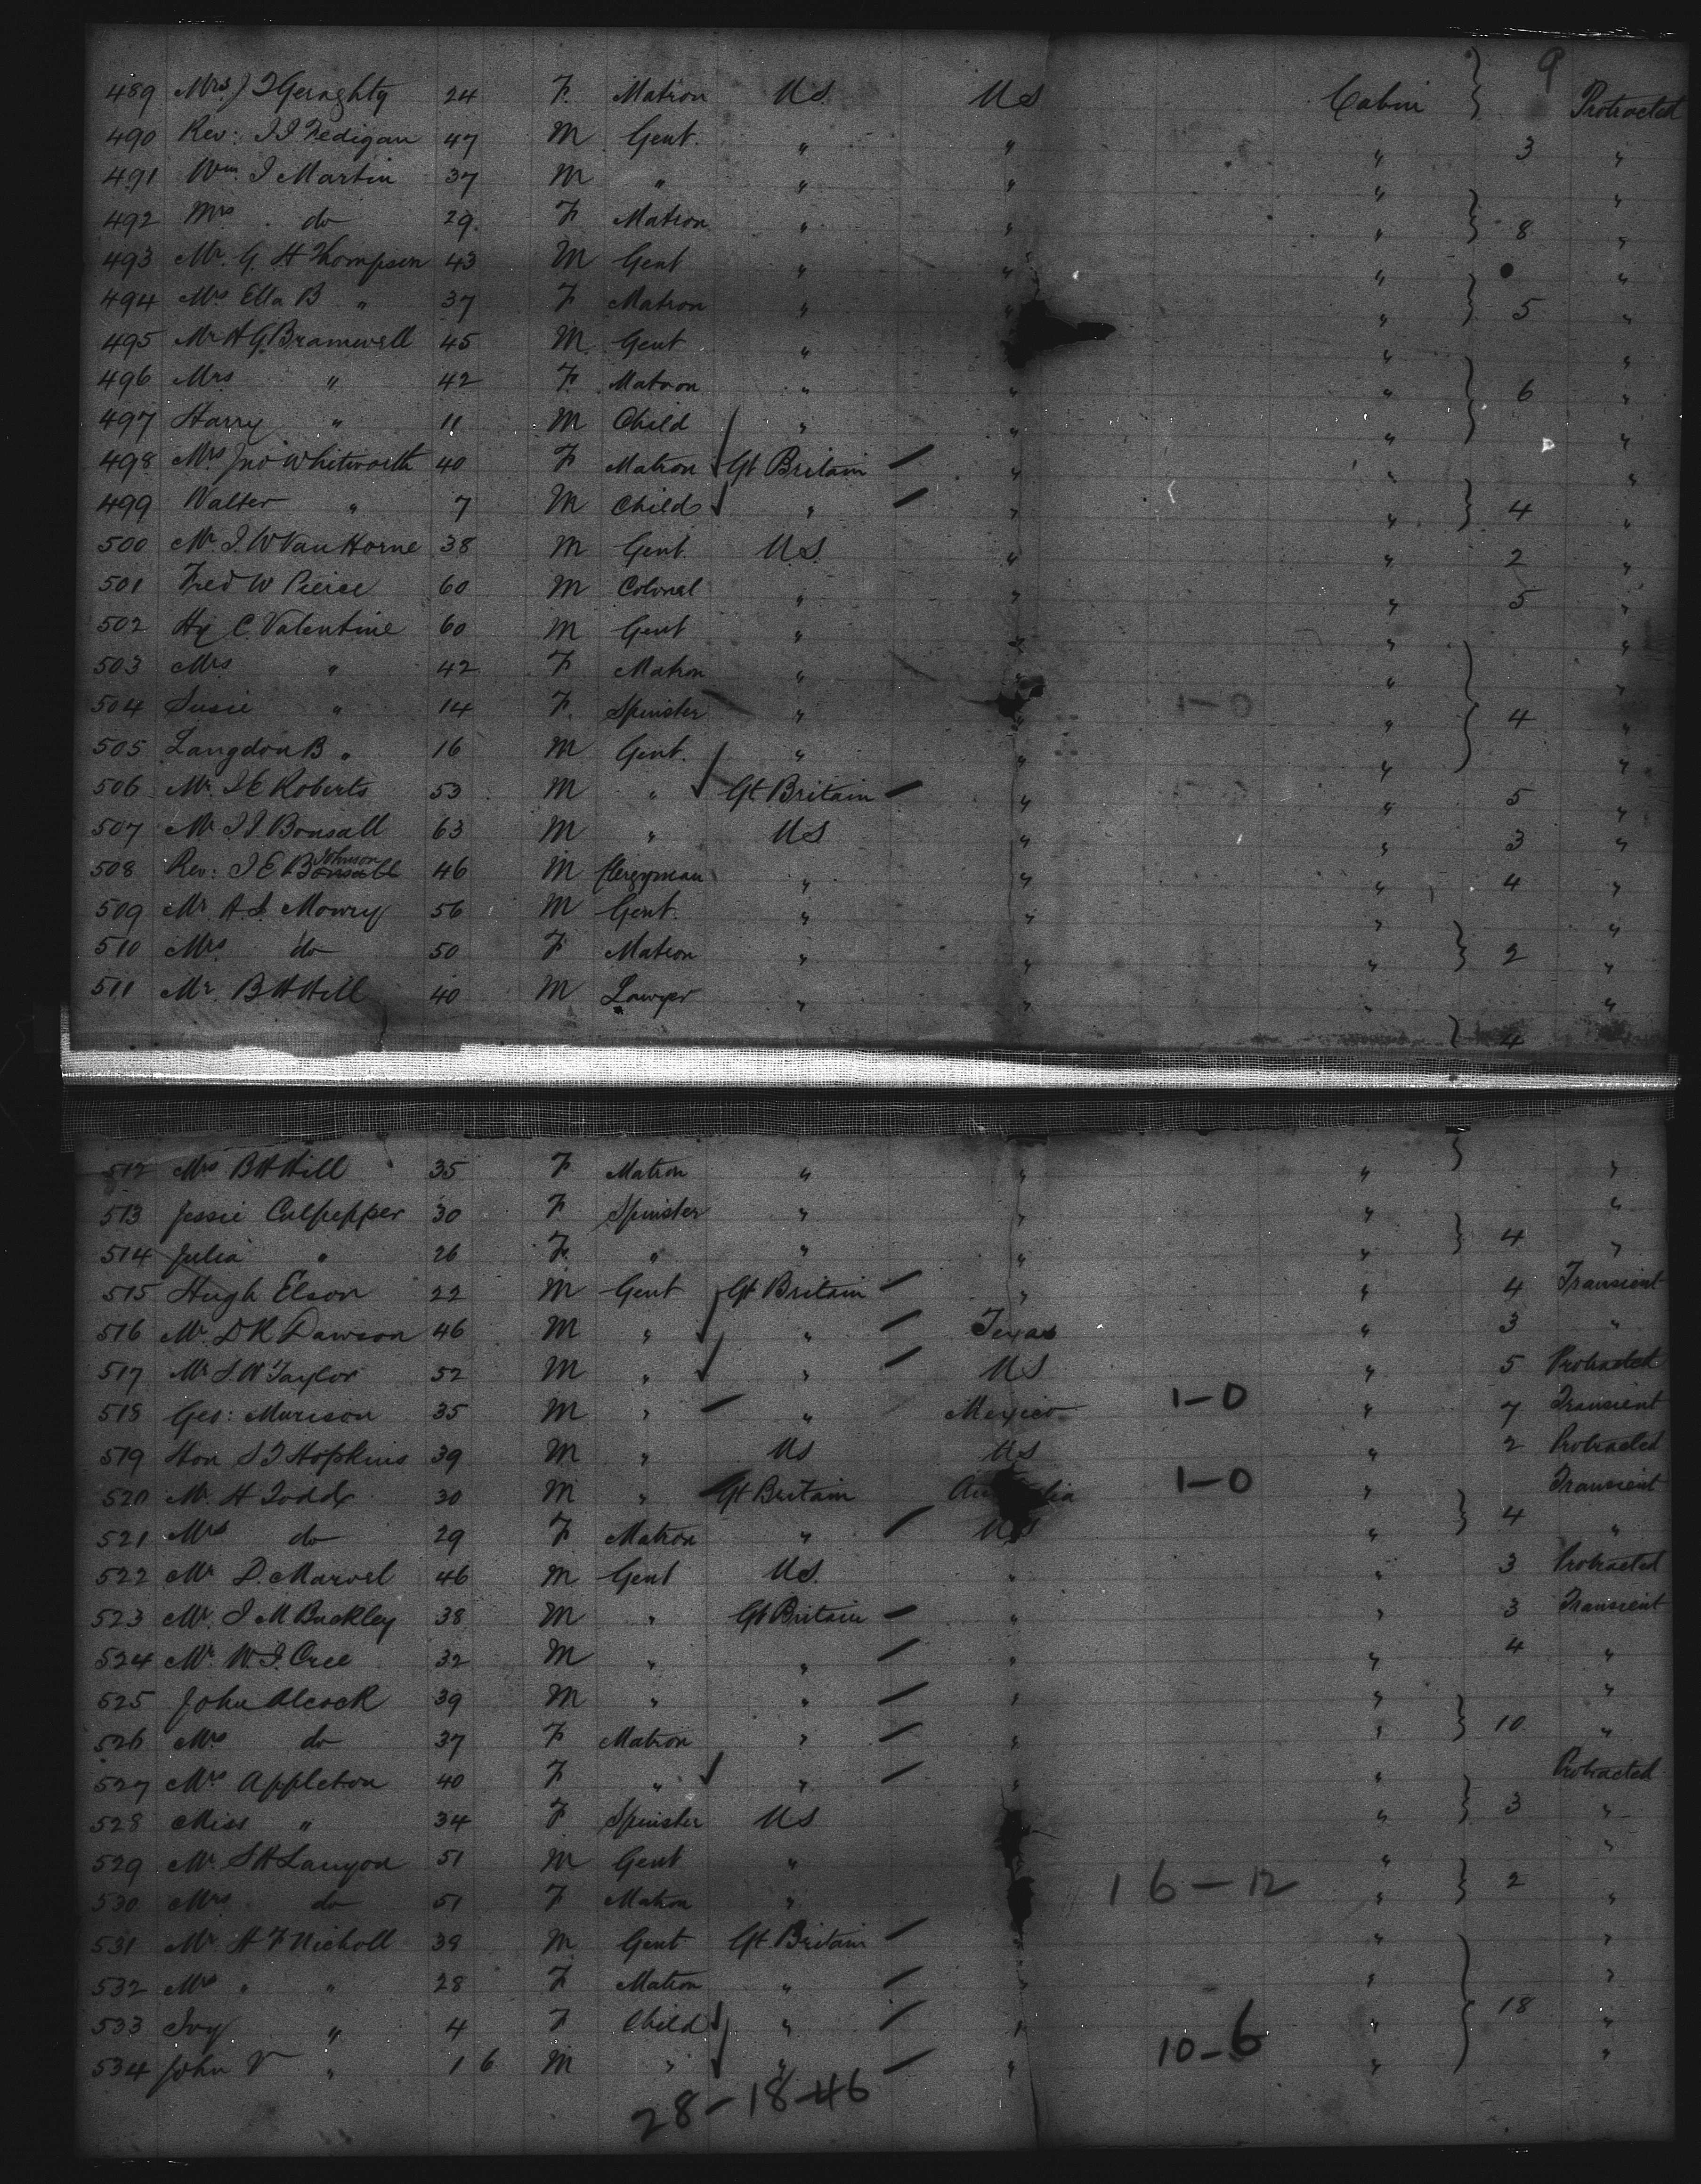 9
489 Mrs J T Geraghty 24 F. Matron US US Cabin } Protracted
490 Rev: J J Fedigan 47 M Gent. " " " 3 "
491 Wm. J Martin 37 M " " " " "
492 Mrs do 29 F Matron " " " } 8 "
493 Mr. G. H Thompson 43 M Gent " " " "
494 Mrs Ella B " 37 F Matron " " " } 5 "
495 Mr H G Bramwell 45 M. Gent " " "
496 Mrs " 42 F. Matron " " " } 6 "
497 Harry " 11 M Child " " " "
498 Mrs Jno Whitworth 40 F Matron Gt Britain " " "
499 Walter " 7 M Child " " " } 4 "
500 Mr. J. W Van Horne 38 M Gent. U.S. " " 2 "
501 Fred W Pierce 60 M Colonel " " " 5 "
502 Hy C. Valentine 60 M Gent " " " "
503 Mrs " 42 F Matron " " " "
504 Susie " 14 F. Spinster " " 1-0 " } 4 "
505 Langdon B " 16 M Gent. " " " "
506 Mr. J E Roberts 53 M " Gt Britain " " 5 "
507 Mr J J. Bonsall 63 M " US " " 3 "
508 Rev: J E Bonsall Johnson 46 M Clergyman " " " 4 "
509 Mr. A. J. Mowry 56 M Gent. " " " "
510 Mrs. do 50 F Matron " " " } 2 "
511 Mr. B H Hill 40 M Lawyer " " " "
} 4
512 Mrs B H Hill 35 F Matron " " " } "
513 Jessie Culpepper 30 F Spinster " " " "
514 Julia " 26 F. " " " " } 4 "
515 Hugh Elson 22 M Gent Gt Britain " " 4 Transient
516 Mr. D R Dawson 46 M " " Texas " 3 "
517 Mr S. W Taylor 52 M " " US " 5 Protracted
518 Geo: Murison 35 M " " Mexico 1-0 " 7 Transient
519 Hon S T Hopkins 39 M " US US " 2 Protracted
520 Mr. H Todd 30 M " Gt Britain 1-0 " Transient
521 Mrs do 29 F Matron " US " } 4 "
522 Mr D. Marvel 46 M Gent US. " " 3 Protracted
523 Mr. J M Buckley 38 M " Gt Britain " " 3 Transient
524 Mr. W. J. Cree 32 M " " " " 4 "
525 John Alcock 39 M " " " " "
526 Mrs do 37 F Matron " " " } 10 "
527 Mrs Appleton 40 F " " " " Protracted
528 Miss " 34 F Spinster US " } 3 "
529 Mr. S H Lanyon 51 M Gent " " "
530 Mrs do 51 F Matron " 16-12 " } 2 "
531 Mr. H F Nicholl 39 M Gent Gt Britain " " "
532 Mrs " " 28 F Matron " " " "
533 Ivy " 4 F Child " " " } 18 "
534 John V " 1 6 M " " " 10-6 " "
28-18-46